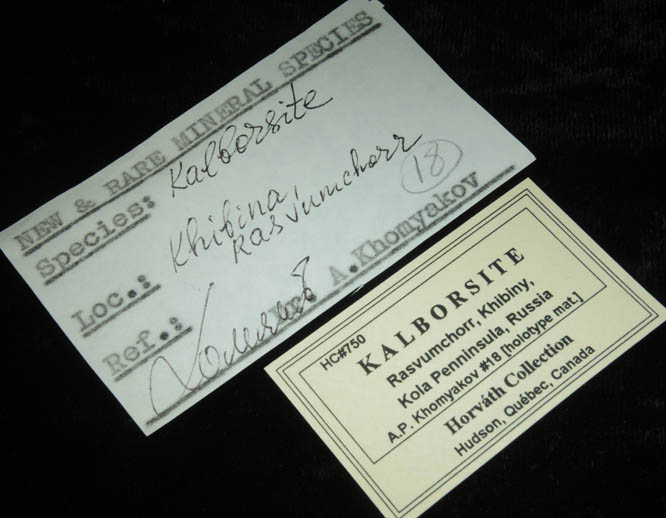 NEW & RARE MINERAL SPECIES
Species: Kalborsite
Loc.: Khibina,
Rasvumchorr
18
Ref.: A. Khomyakov
Хомяков
HC#750
KALBORSITE
Rasvumchorr, Khibiny,
Kola Penninsula, Russia
A.P. Khomyakov #18 [holotype mat.]
Horváth Collection
Hudson, Québec, Canada